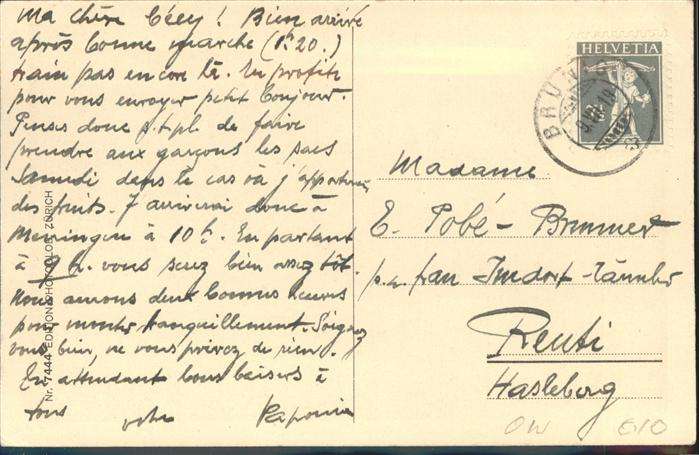 Ma chère Cécy! Bien arrivé
après bonne marche (1h.20.)
train pas encore là. En profite
pour vous envoyer petit bonjour.
Penses donc s.t.pl. de faire
prendre aux garçons les sacs
Samedi dans le cas où j'apporterai
des fruits. J'arriverai donc à
Meiringen à 10 h. En partant
à 9 h. vous serez bien assez tôt.
Nous aurons deux bonnes heures
pour monter tranquillement. Soignez
vous bien, ne vous privez de rien.
En attendant bons baisers à
tous votre
Nr. 7444 EDITION PHOTOGLOB, ZÜRICH
HELVETIA
BRU
Madame
E. Pobé-Brunner
p.a. frau Imdorf-Tännler
Reuti
Hasleberg
OW 610